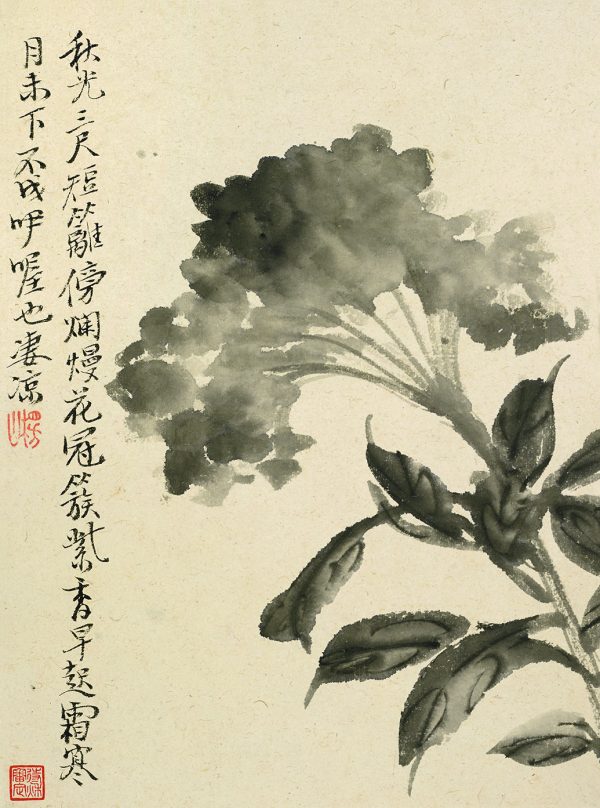 秋光三尺短籬傍爛熳花冠簇紫香早起霜寒
月未下不成咿喔也凄凉